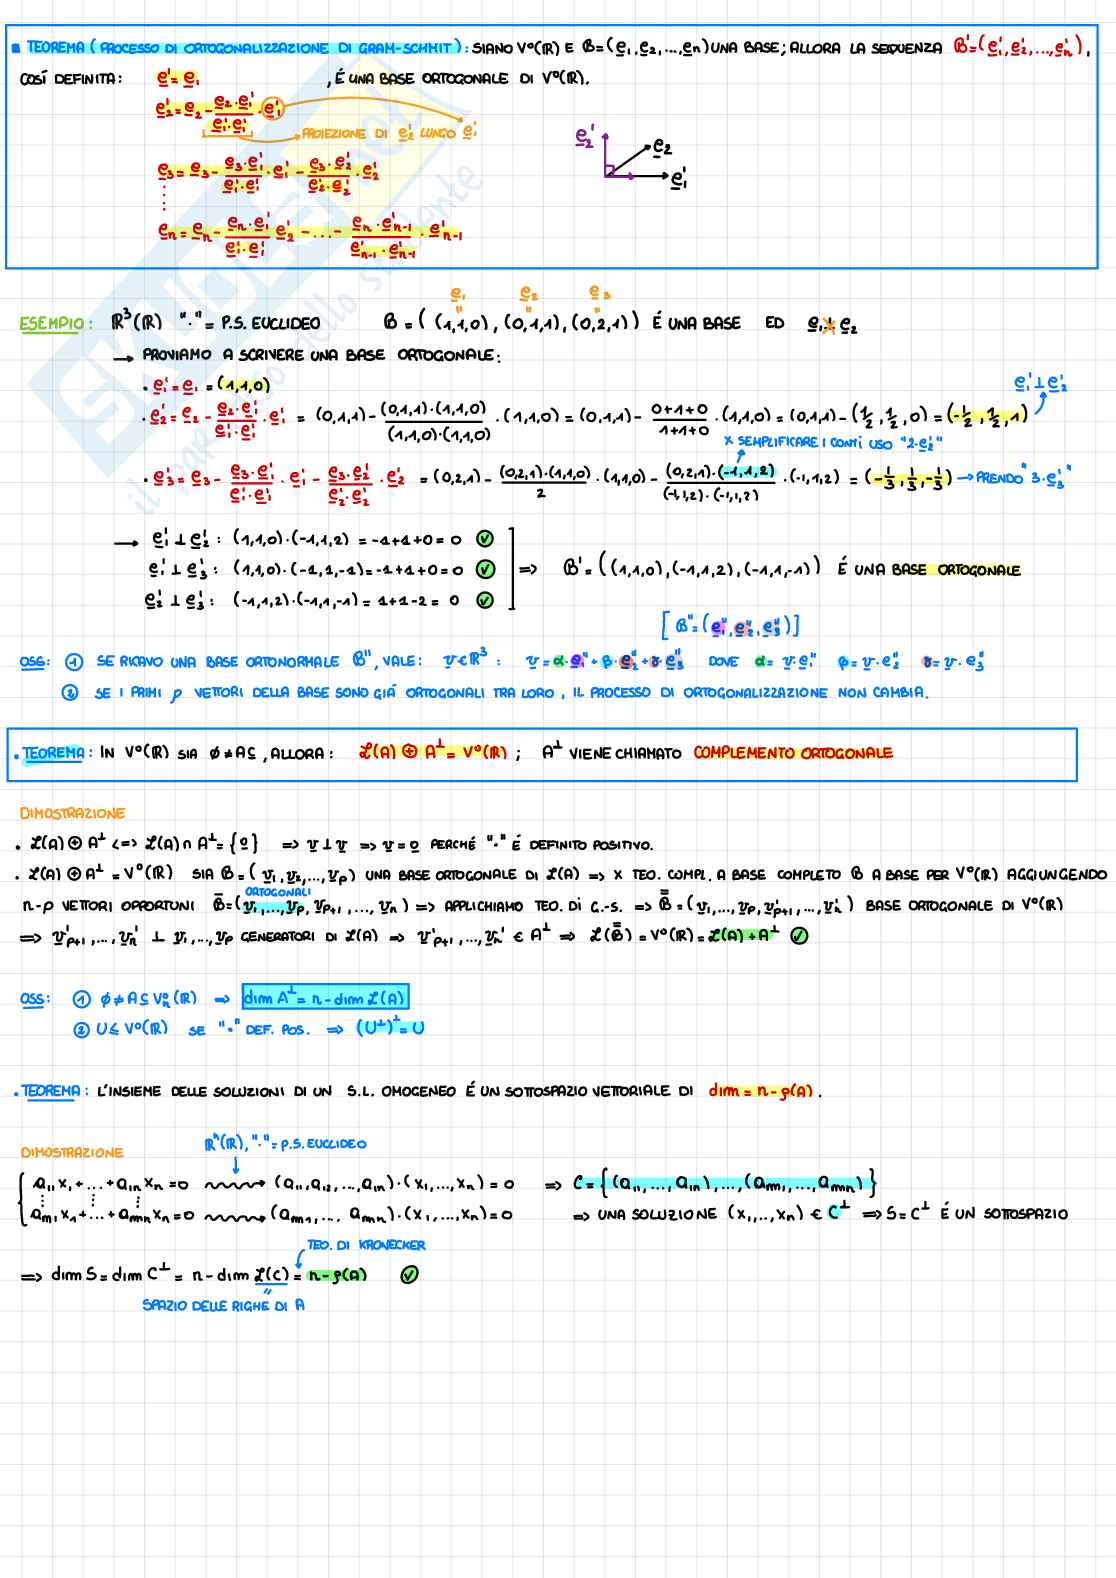 ▪ TEOREMA (PROCESSO DI ORTOGONALIZZAZIONE DI GRAM-SCHMIT): SIANO V°(ℝ) E B=(e₁,e₂,...,eₙ) UNA BASE; ALLORA LA SEQUENZA B'=(e₁',e₂',...,eₙ'),
COSÍ DEFINITA: e'=e₁ , É UNA BASE ORTOGONALE DI V°(ℝ).
e₂'=e₂ - (e₂·e₁')/(e₁'·e₁') · e₁'
PROIEZIONE DI e₂' LUNGO e₁'
e₂' e₂ e₁'
e₃ = e₃ - (e₃·e₁')/(e₁'·e₁') · e₁' - (e₃·e₂')/(e₂'·e₂') · e₂'
eₙ = eₙ - (eₙ·e₁')/(e₁'·e₁') e₂' - ... - (eₙ·e'ₙ₋₁)/(e'ₙ₋₁·e'ₙ₋₁) · e'ₙ₋₁
e₁ e₂ e₃
ESEMPIO: ℝ³(ℝ) "·" = P.S. EUCLIDEO B = ( (1,1,0), (0,1,1), (0,2,1) ) É UNA BASE ED e₁ ⊥̸ e₂
→ PROVIAMO A SCRIVERE UNA BASE ORTOGONALE:
· e₁' = e₁ = (1,1,0) e₁' ⊥ e₂'
· e₂' = e₂ - (e₂·e₁')/(e₁'·e₁') · e₁' = (0,1,1) - ((0,1,1)·(1,1,0))/((1,1,0)·(1,1,0)) · (1,1,0) = (0,1,1) - (0+1+0)/(1+1+0) · (1,1,0) = (0,1,1) - (1/2, 1/2, 0) = (-1/2, 1/2, 1)
X SEMPLIFICARE I CONTI USO "2·e₂'"
· e₃' = e₃ - (e₃·e₁')/(e₁'·e₁') · e₁' - (e₃·e₂')/(e₂'·e₂') · e₂' = (0,2,1) - ((0,2,1)·(1,1,0))/2 · (1,1,0) - ((0,2,1)·(-1,1,2))/((-1,1,2)·(-1,1,2)) · (-1,1,2) = (-1/3, 1/3, -1/3) → PRENDO "3·e₃'"
→ e₁' ⊥ e₂' : (1,1,0)·(-1,1,2) = -1+1+0 = 0
e₁' ⊥ e₃' : (1,1,0)·(-1,1,-1) = -1+1+0 = 0 => B' = ((1,1,0), (-1,1,2), (-1,1,-1)) É UNA BASE ORTOGONALE
e₂' ⊥ e₃' : (-1,1,2)·(-1,1,-1) = 1+1-2 = 0
[B''=(e₁'', e₂'', e₃'')]
OSS: ① SE RICAVO UNA BASE ORTONORMALE B'', VALE: v ∈ ℝ³ : v = α·e₁'' + β·e₂'' + γ·e₃'' DOVE α = v·e₁'' β = v·e₂'' γ = v·e₃''
② SE I PRIMI p VETTORI DELLA BASE SONO GIÁ ORTOGONALI TRA LORO, IL PROCESSO DI ORTOGONALIZZAZIONE NON CAMBIA.
· TEOREMA: IN V°(ℝ) SIA ∅ ≠ A ⊆ , ALLORA: ℒ(A) ⊕ A^⊥ = V°(ℝ) ; A^⊥ VIENE CHIAMATO COMPLEMENTO ORTOGONALE
DIMOSTRAZIONE
· ℒ(A) ⊕ A^⊥ <=> ℒ(A) ∩ A^⊥ = {0} => v ⊥ v => v = 0 PERCHÉ "·" É DEFINITO POSITIVO.
· ℒ(A) ⊕ A^⊥ = V°(ℝ) SIA B = (v₁,v₂,...,vₚ) UNA BASE ORTOGONALE DI ℒ(A) => X TEO. COMPL. A BASE COMPLETO B A BASE PER V°(ℝ) AGGIUNGENDO
ORTOGONALI
n-p VETTORI OPPORTUNI B̄=(v₁,...,vₚ, vₚ₊₁,...,vₙ) => APPLICHIAMO TEO. DI G.-S. => B̿ = (v₁,...,vₚ,v'ₚ₊₁,...,vₙ') BASE ORTOGONALE DI V°(ℝ)
=> v'ₚ₊₁,...,vₙ' ⊥ v₁,...,vₚ GENERATORI DI ℒ(A) => v'ₚ₊₁,...,vₙ' ∈ A^⊥ => ℒ(B̿) = V°(ℝ) = ℒ(A) + A^⊥
OSS: ① ∅ ≠ A ⊆ Vₙ°(ℝ) => dim A^⊥ = n - dim ℒ(A)
② U ≤ V°(ℝ) SE "·" DEF. POS. => (U^⊥)^⊥ = U
· TEOREMA: L'INSIEME DELLE SOLUZIONI DI UN S.L. OMOGENEO É UN SOTTOSPAZIO VETTORIALE DI dim = n - ρ(A).
ℝⁿ(ℝ), "·" = P.S. EUCLIDEO
DIMOSTRAZIONE
a₁₁x₁ + ... + a₁ₙxₙ = 0 (a₁₁,a₁₂,...,a₁ₙ)·(x₁,...,xₙ) = 0 => C = {(a₁₁,...,a₁ₙ),...,(aₘ₁,...,aₘₙ)}
aₘ₁x₁ + ... + aₘₙxₙ = 0 (aₘ₁,... aₘₙ)·(x₁,...,xₙ) = 0 => UNA SOLUZIONE (x₁,..,xₙ) ∈ C^⊥ => S = C^⊥ É UN SOTTOSPAZIO
TEO. DI KRONECKER
=> dim S = dim C^⊥ = n - dim ℒ(C) = n - ρ(A)
SPAZIO DELLE RIGHE DI A